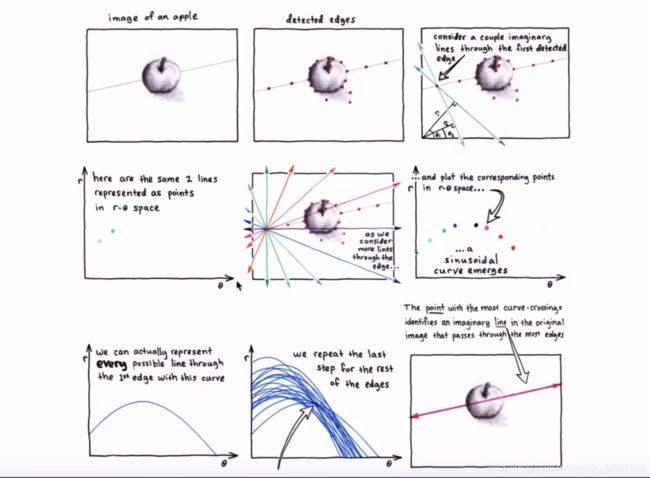 image of an apple
detected edges
consider a couple imaginary
lines through the first detected
edge
r₁
r₂
θ₁
θ₂
here are the same 2 lines
represented as points
in r-θ space
r
θ
as we
consider
more lines
through the
edge...
...and plot the corresponding points
in r-θ space...
r
...a
sinusoidal
curve emerges
θ
we can actually represent
every possible line through
the 1st edge with this curve
r
θ
we repeat the last
step for the rest
of the edges
r
θ
The point with the most curve-crossings
identifies an imaginary line in the original
image that passes through the most edges